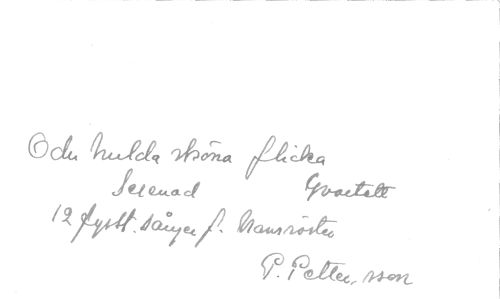 O du hulda sköna flicka
Serenad Qvartett
12 fyrst. sånger f. Mansröster
P. Petter,sson